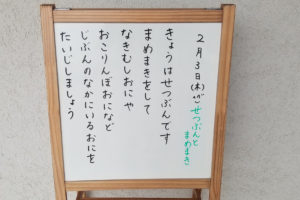 2月3日(木)
せつぶんと
まめまき
きょうはせつぶんです
まめまきをして
なきむしおにや
おこりんぼおになど
じぶんのなかにいるおにを
たいじしましょう